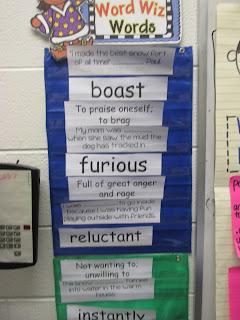 Word Wiz
Words
"I made the best snow fort
of all time!" Paul
boast
To praise oneself;
to brag
My mom was
when she saw the mud the
dog has tracked in.
furious
Full of great anger
and rage
to go inside
because I was having fun
playing outside with friends.
reluctant
Not wanting to;
unwilling to
turned
into water in the warm
house.
instantly